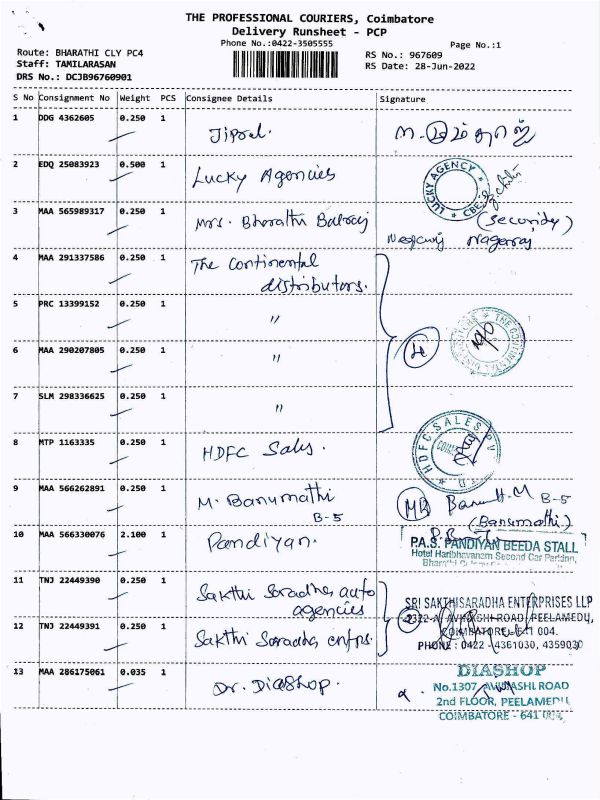 THE PROFESSIONAL COURIERS, Coimbatore
Delivery Runsheet - PCP
Phone No.:0422-3505555
Page No.:1
Route: BHARATHI CLY PC4
Staff: TAMILARASAN
DRS No.: DCJB96760901
RS No.: 967609
RS Date: 28-Jun-2022
S No Consignment No Weight PCS Consignee Details Signature
1 DDG 4362605 0.250 1
2 EDQ 25083923 0.500 1 Lucky Agencies
LUCKY AGENCY CBE
3 MAA 565989317 0.250 1 Mrs. Bharathi Balraj
(Security)
Nagaraj
4 MAA 291337586 0.250 1 The Continental
distributors.
5 PRC 13399152 0.250 1 〃
THE CONTINENTAL
4
6 MAA 290207805 0.250 1 〃
7 SLM 298336625 0.250 1 〃
8 MTP 1163335 0.250 1 HDFC Sales.
HDFC SALES PV LTD
9 MAA 566262891 0.250 1 M. Banumathi
B-5
Banu H.M B-5
(Banumathi)
10 MAA 566330076 2.100 1 Pandiyan.
P.A.S. PANDIYAN BEEDA STALL
Hotel Haribhavanam Second Car Parking,
11 TNJ 22449390 0.250 1 Sakthi Saradha auto
agencies
SRI SAKTHISARADHA ENTERPRISES LLP
2322-A, AVINASHI ROAD, PEELAMEDU,
12 TNJ 22449391 0.250 1 Sakthi Saradha entps.
2
COIMBATORE - 641 004.
PHONE : 0422 - 4361030, 4359030
13 MAA 286175061 0.035 1 Dr. Diashop.
DIASHOP
No.1307, AVINASHI ROAD
2nd FLOOR, PEELAMEDU,
COIMBATORE - 641 004.